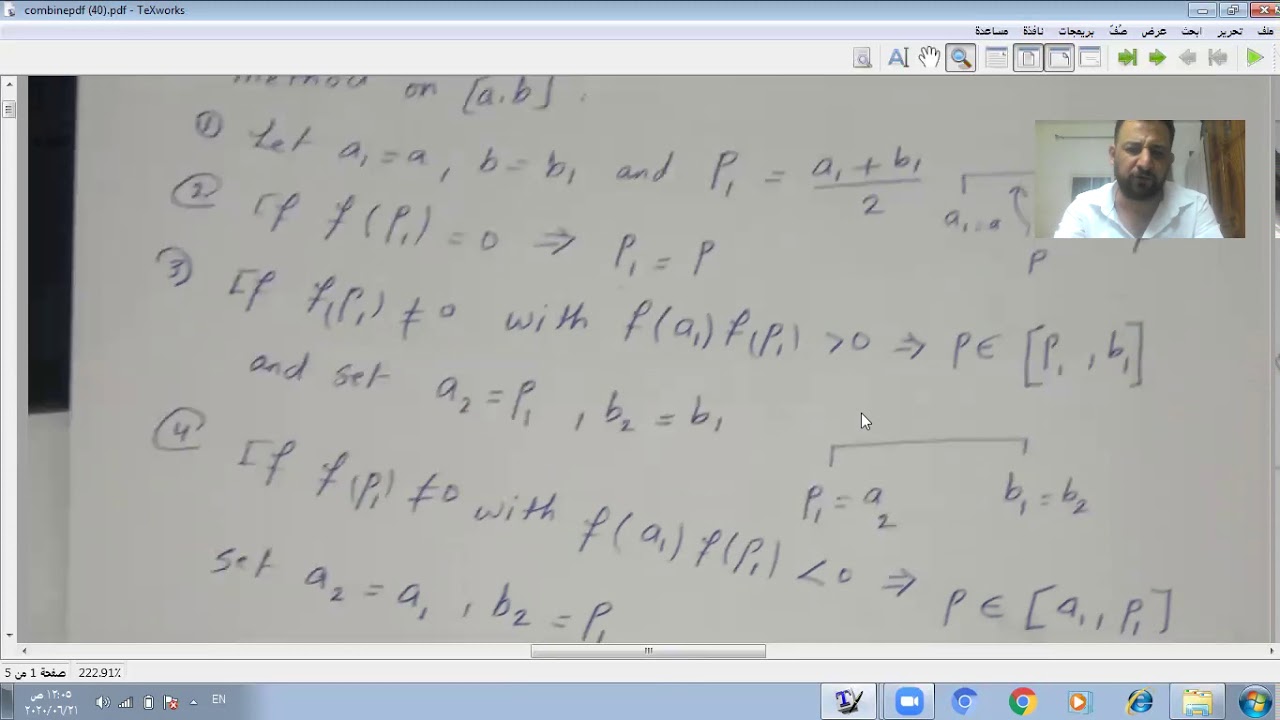 combinepdf (40).pdf - TeXworks
ملف تحرير ابحث عرض صُفّ بريمجات نافذة مساعدة
method on [a,b].
① Let a₁ = a, b = b₁ and P₁ = (a₁ + b₁)/2
a₁ = a
P
② If f(P₁) = 0 ⇒ P₁ = P
3) If f(P₁) ≠ 0 with f(a₁) f(P₁) > 0 ⇒ P ∈ [P₁, b₁]
and set a₂ = P₁, b₂ = b₁
P₁ = a₂ b₁ = b₂
④ If f(P₁) ≠ 0 with f(a₁) f(P₁) < 0 ⇒ P ∈ [a₁, P₁]
set a₂ = a₁, b₂ = P₁
222.91% صفحة 1 من 5
EN
١٢:٠٥ ص
٢٠٢٠/٠٦/٢١